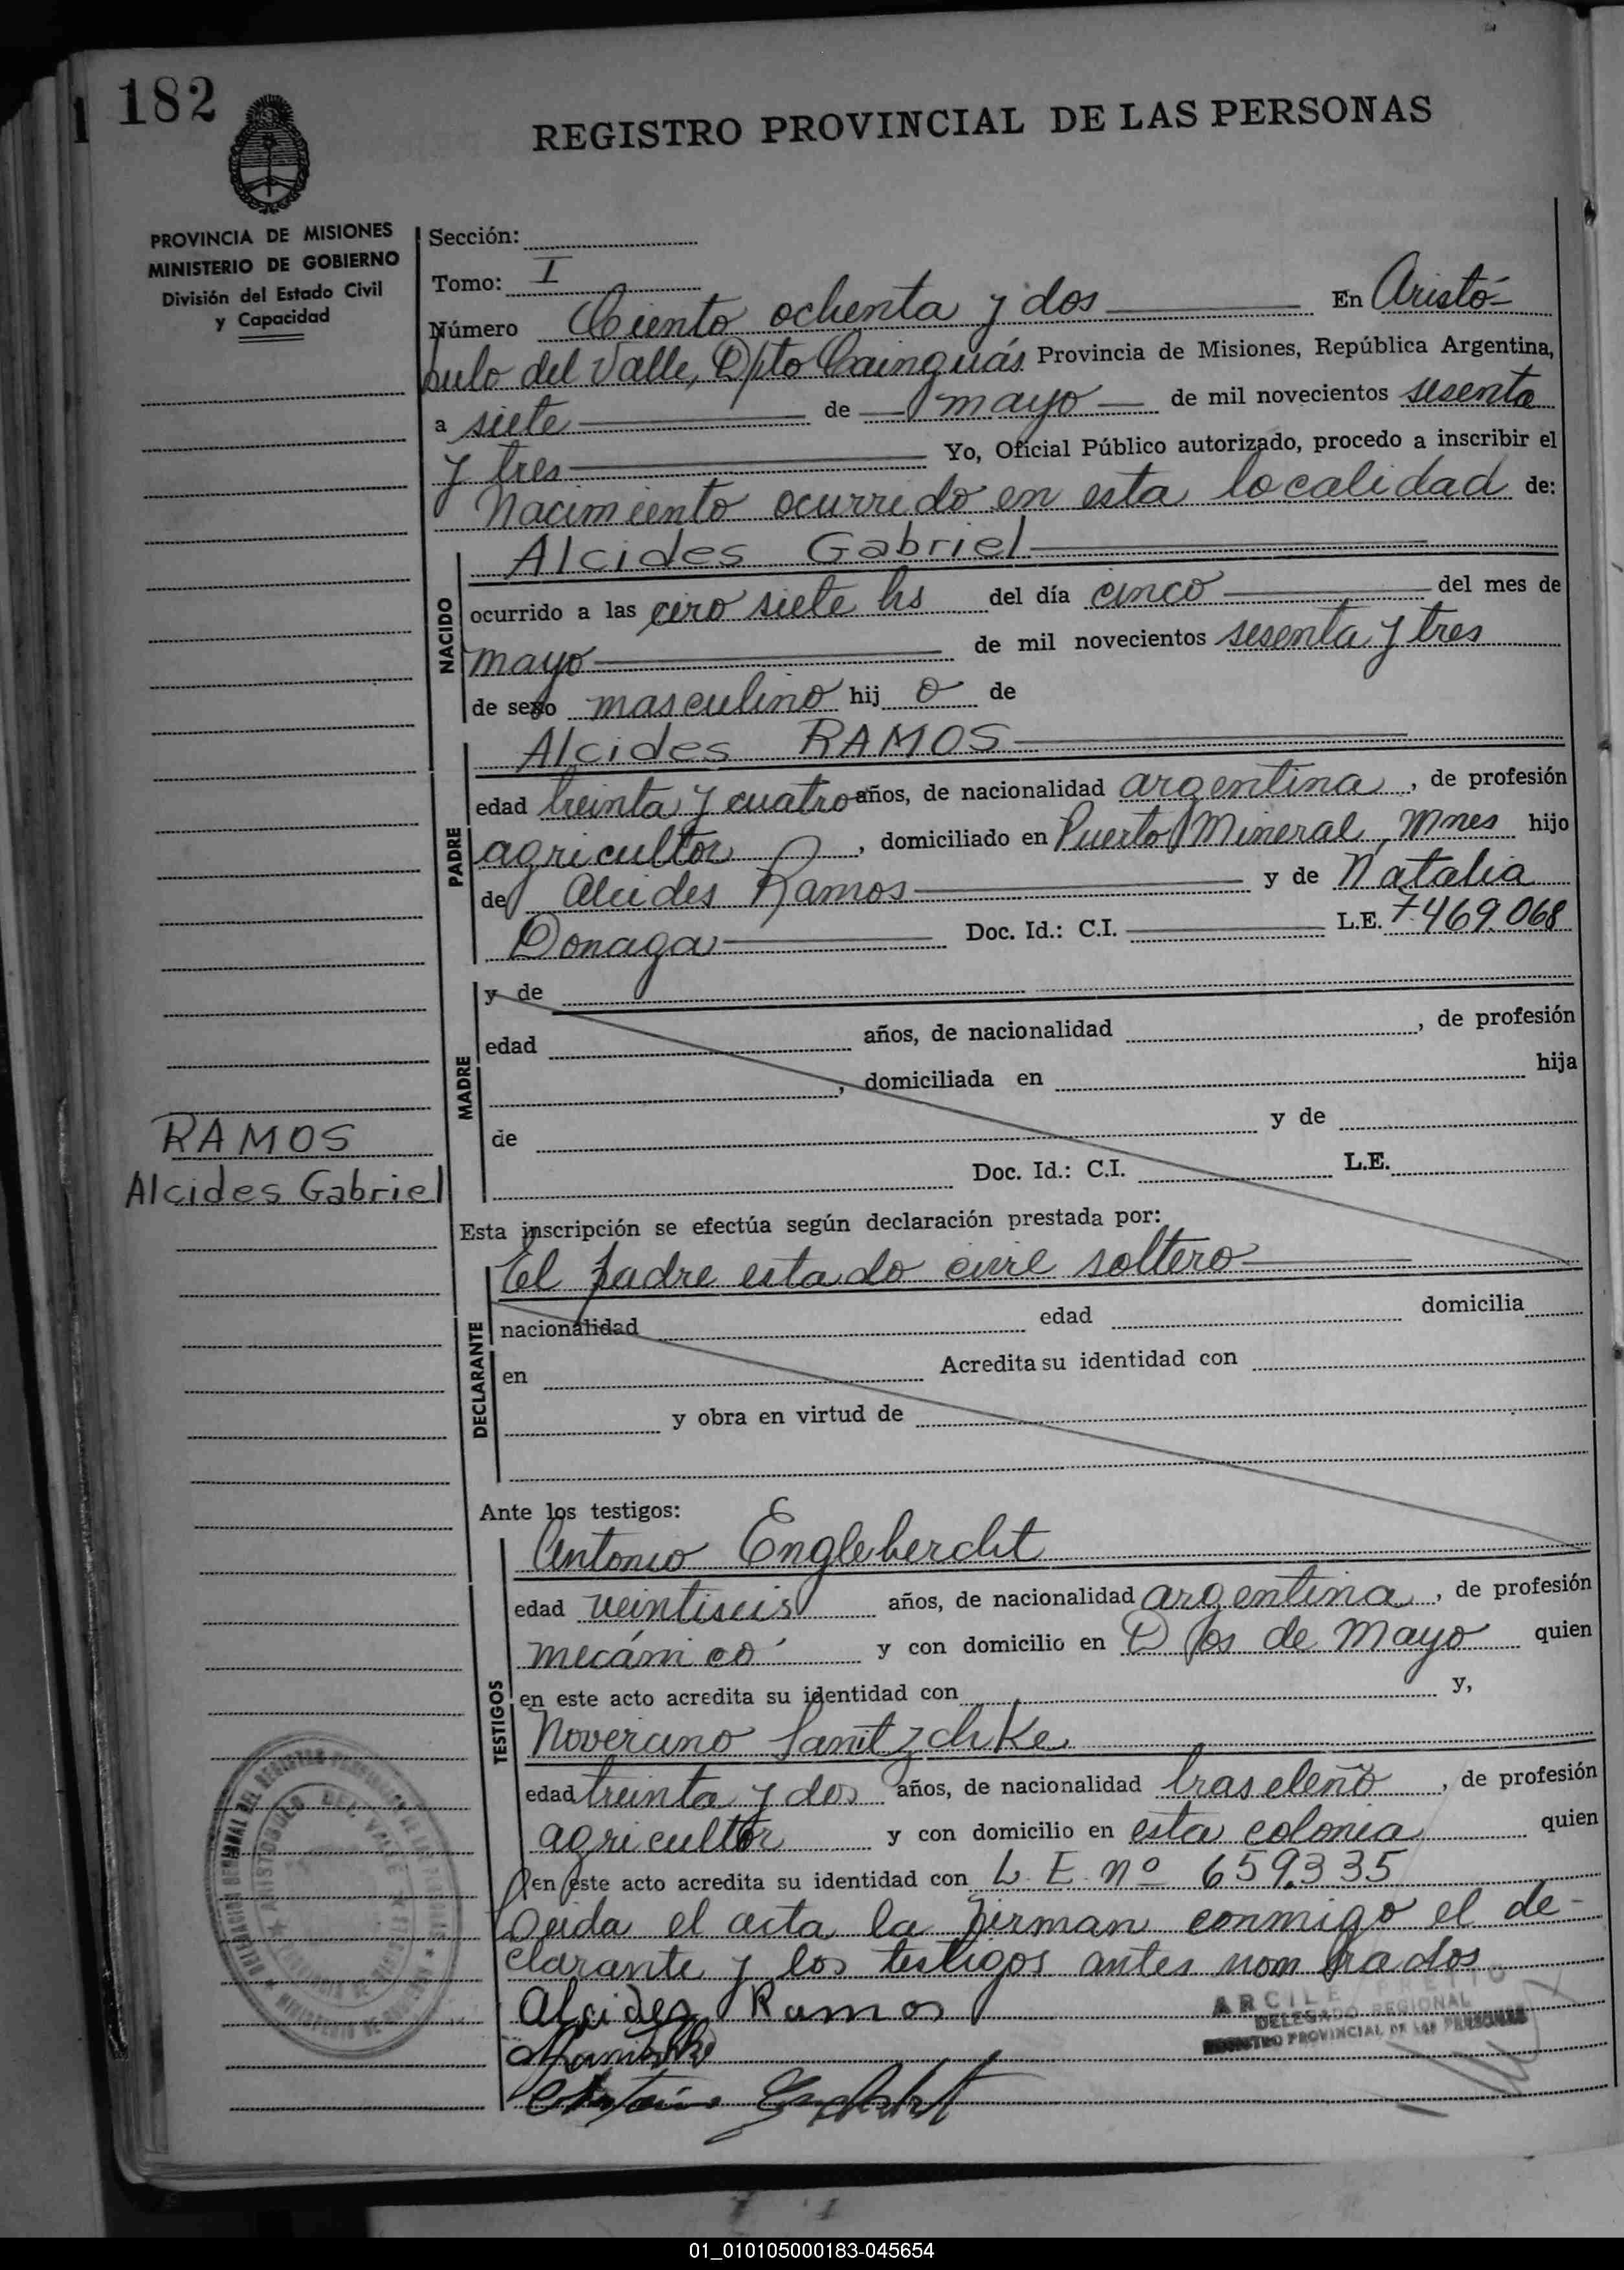 182
REGISTRO PROVINCIAL DE LAS PERSONAS
PROVINCIA DE MISIONES
MINISTERIO DE GOBIERNO
División del Estado Civil
y Capacidad
Sección:
Tomo: I
Número Ciento ochenta y dos En Aristó-
bulo del Valle, Dpto Cainguás Provincia de Misiones, República Argentina,
a siete de mayo de mil novecientos sesenta
y tres Yo, Oficial Público autorizado, procedo a inscribir el
Nacimiento ocurrido en esta localidad de:
NACIDO
Alcides Gabriel
ocurrido a las cero siete hs del día cinco del mes de
mayo de mil novecientos sesenta y tres
de sexo masculino hij o de
PADRE
Alcides RAMOS
edad treinta y cuatro años, de nacionalidad argentina, de profesión
agricultor, domiciliado en Puerto Mineral, Mnes hijo
de Alcides Ramos y de Natalia
Donaga Doc. Id.: C.I. L.E. 7469.068
MADRE
y de
edad años, de nacionalidad , de profesión
, domiciliada en hija
de y de
Doc. Id.: C.I. L.E.
RAMOS
Alcides Gabriel
Esta inscripción se efectúa según declaración prestada por:
DECLARANTE
El padre estado civil soltero
nacionalidad edad domicilia
en Acredita su identidad con
y obra en virtud de
Ante los testigos:
TESTIGOS
Antonio Engleberdit
edad veintiseis años, de nacionalidad argentina, de profesión
mecánico y con domicilio en Dos de Mayo quien
en este acto acredita su identidad con y,
Novercino
edad treinta y dos años, de nacionalidad braseleño, de profesión
agricultor y con domicilio en esta colonia quien
en este acto acredita su identidad con L. E. nº 659.335
Leida el acta la firman conmigo el de-
clarante y los testigos antes nombrados
Alcides Ramos
DELEGADO REGIONAL
REGISTRO PROVINCIAL DE LAS PERSONAS
ARISTOBULO DEL VALLE
01_010105000183-045654